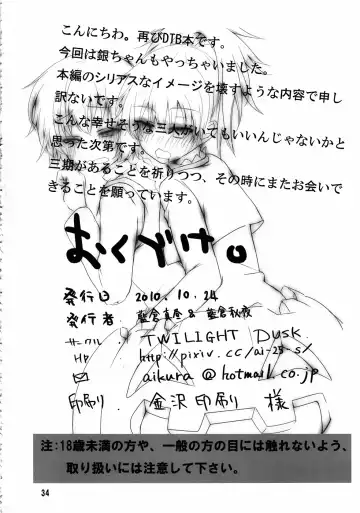 こんにちわ。再びDTB本です。
今回は銀ちゃんもやっちゃいました。
本編のシリアスなイメージを壊すような内容で申し
訳ないです。
こんな幸せそうな三人がいてもいいんじゃないかと
思った次第です。
三期があることを祈りつつ、その時にまたお会いで
きることを願っています。
おくづけ。
発行日 2010.10.24
発行者 藍倉真金 & 藍倉秋夜
サークル TWILIGHT DUSK
HP http://pixiv.cc/ai-23_s/
✉ aikura@hotmail.co.jp
印刷 金沢印刷 様
注:18歳未満の方や、一般の方の目には触れないよう、
取り扱いには注意して下さい。
34